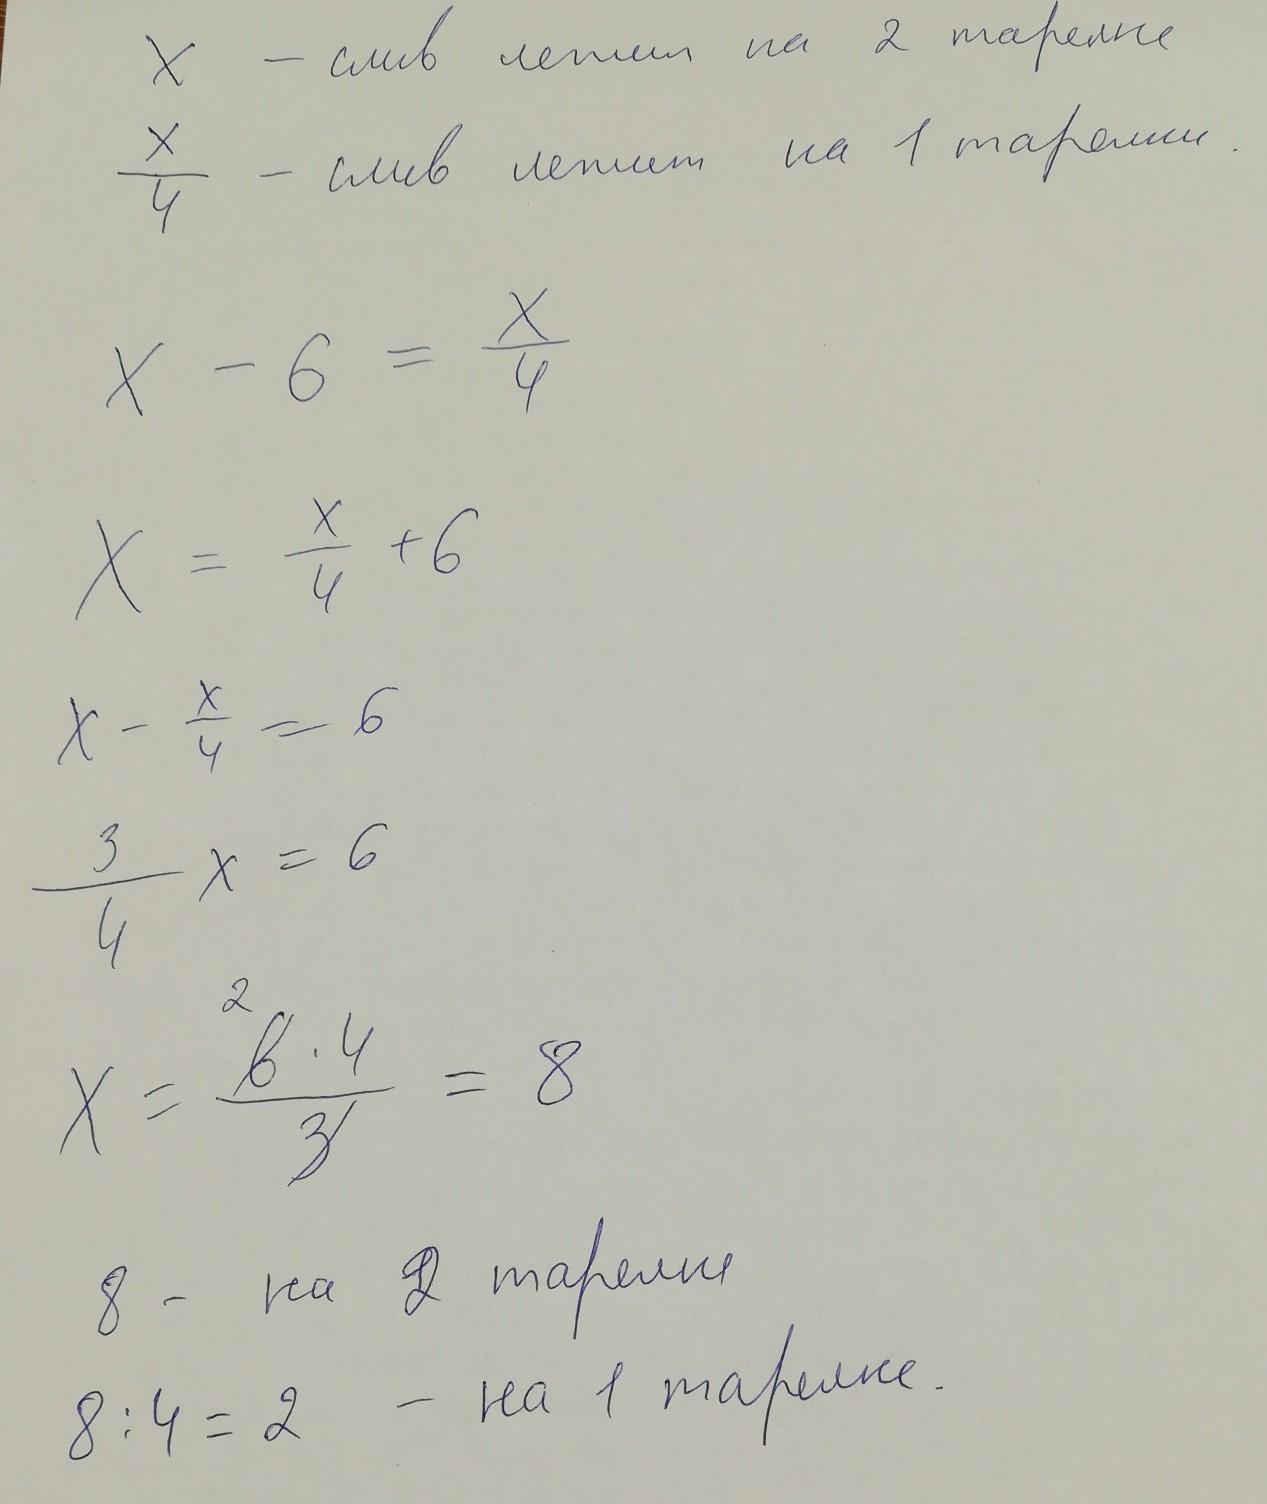 x – слив лежит на 2 тарелке
x/4 – слив лежит на 1 тарелки.
x – 6 = x/4
x = x/4 + 6
x – x/4 = 6
3/4 x = 6
x = 6 · 4 / 3 = 8
2
8 – на 2 тарелке
8 : 4 = 2 – на 1 тарелке.